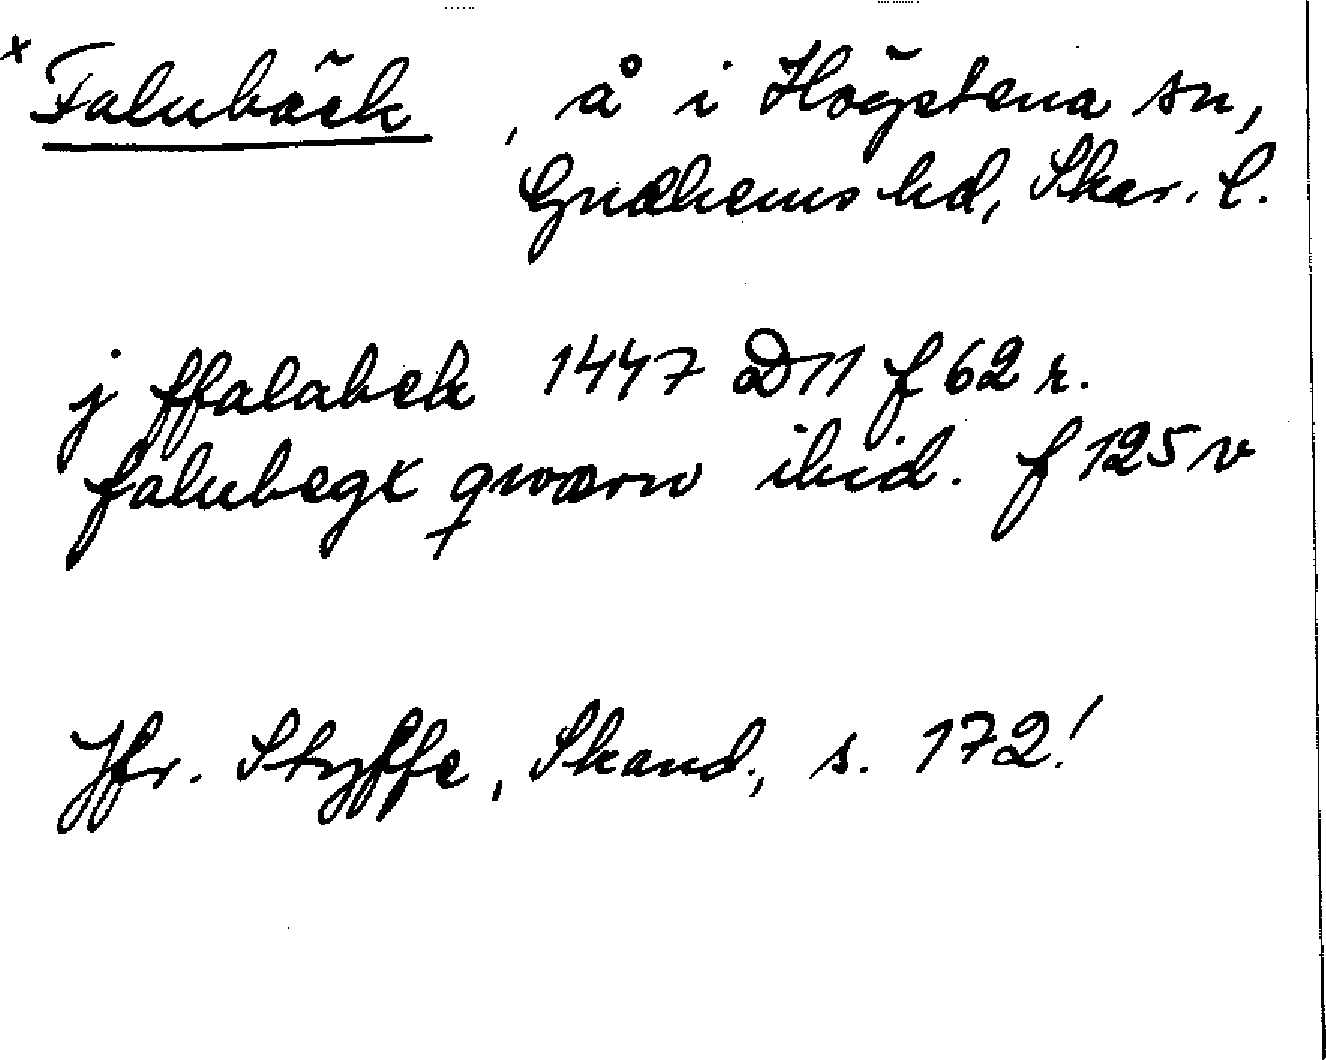 x Falubäck, å i Högstena sn,
Gudhems hd, Skar. l.
j ffalabek 1447 D11 f 62 r.
falubegx qwærw ibid. f 125 v
Jfr. Styffe, Skand., s. 172!